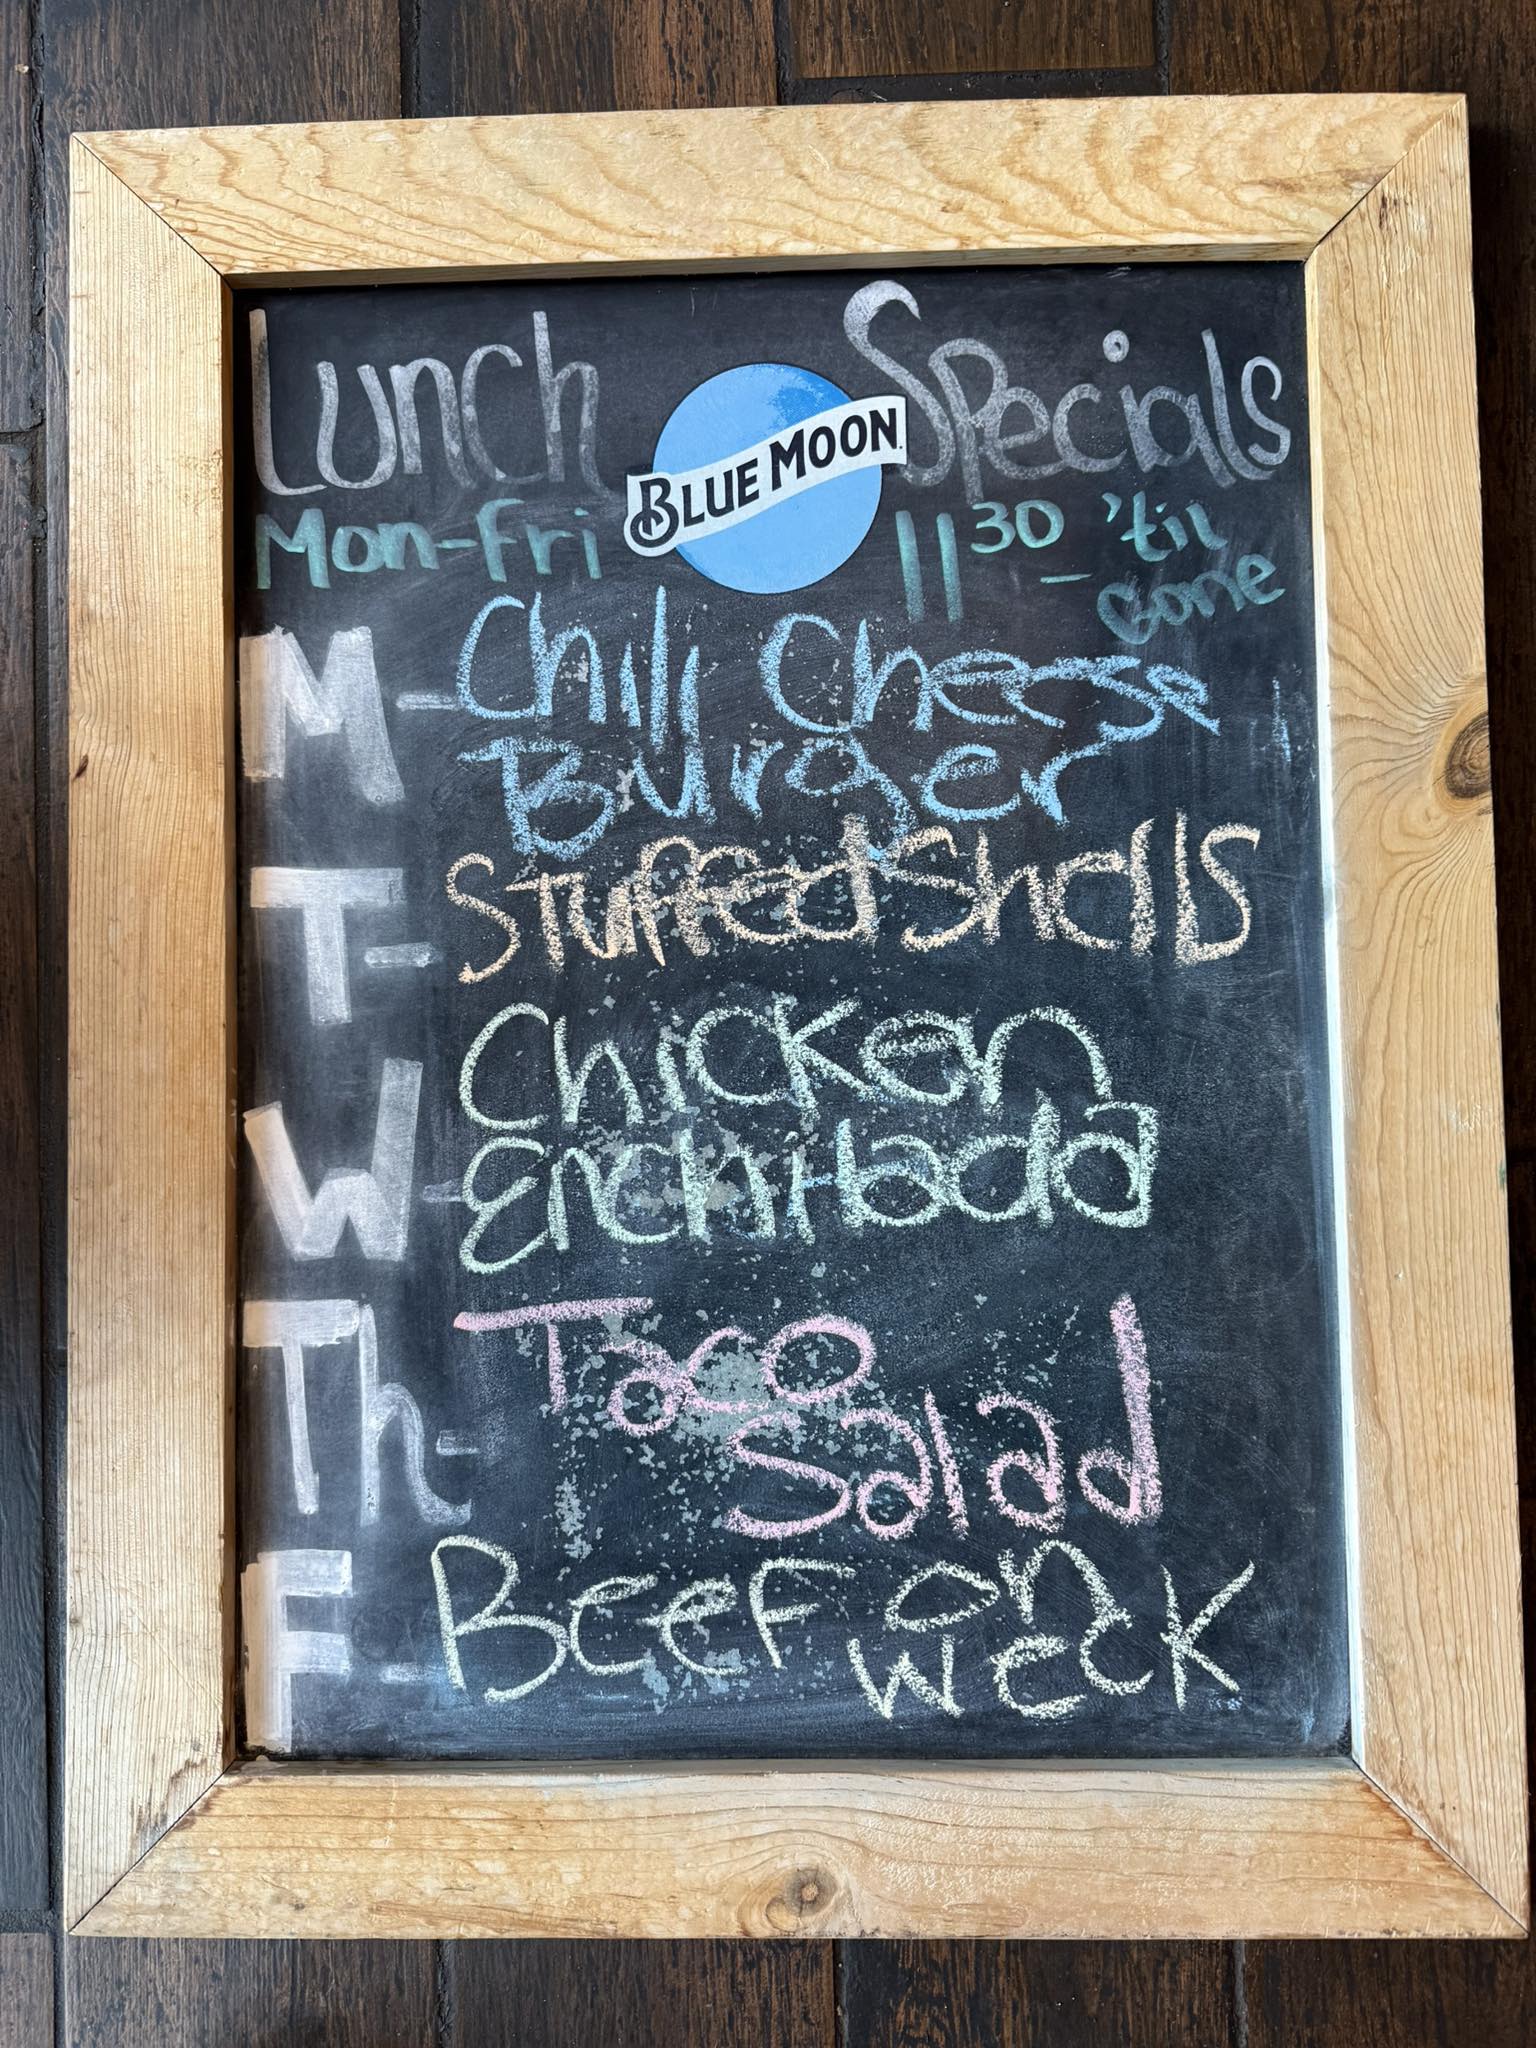 Lunch Specials
BLUE MOON
Mon-Fri 11 30 - 'til
Gone
M- Chili Cheese
Burger
T- Stuffed Shells
W- Chicken
Enchilada
Th- Taco
Salad
F- Beef on
weck